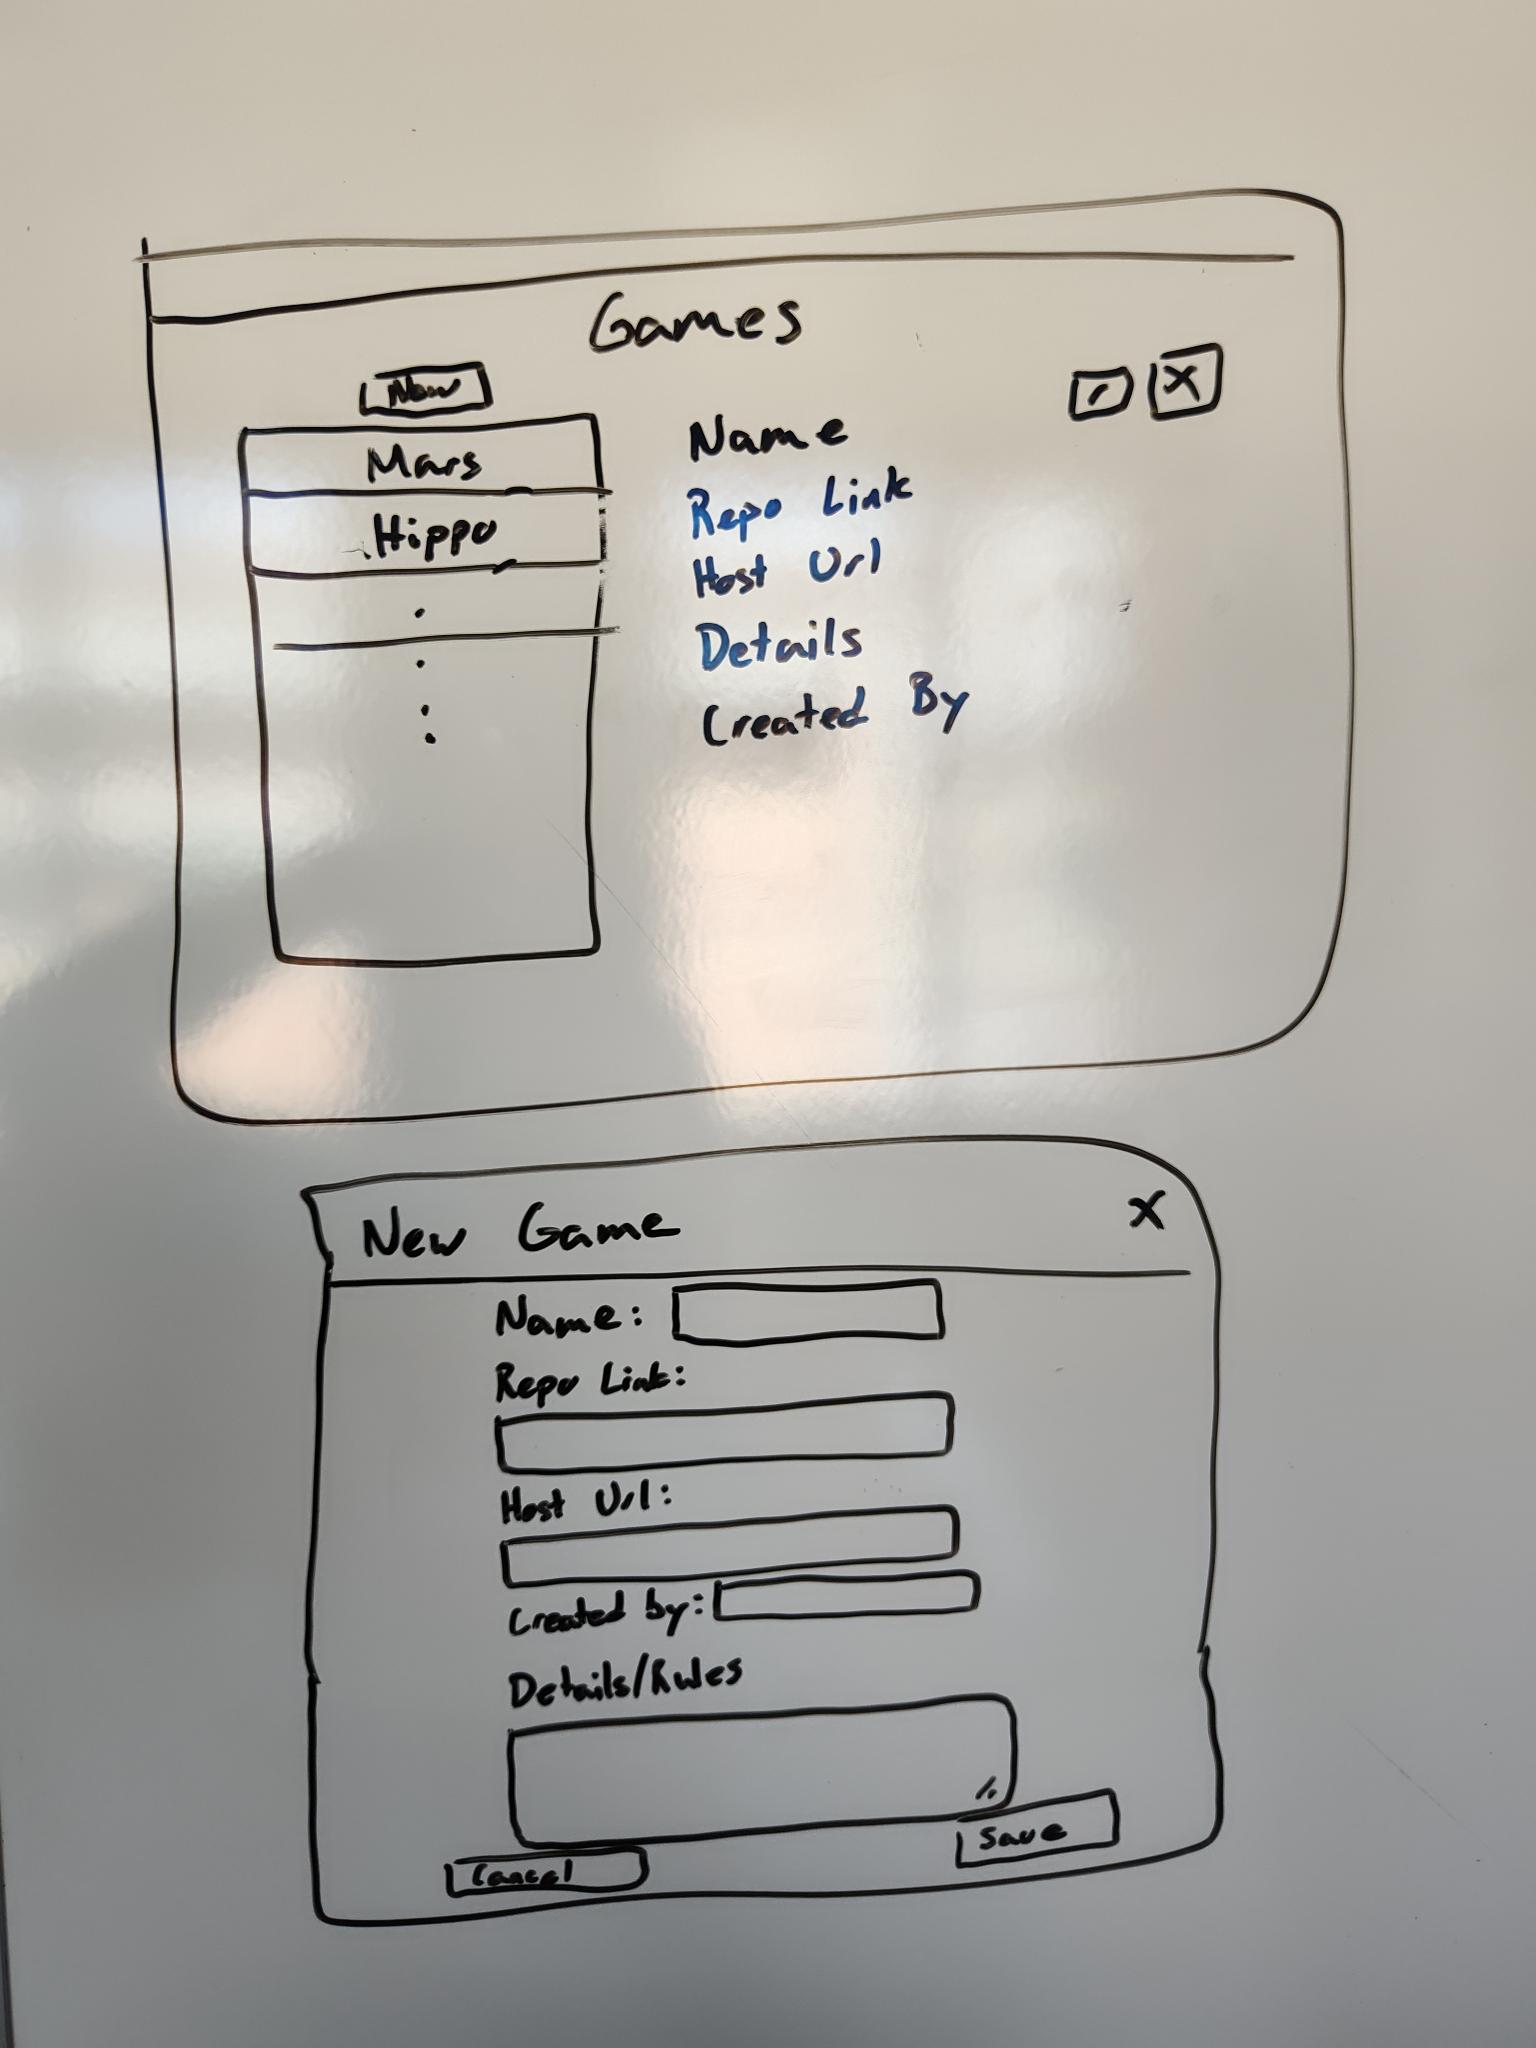 Games
New
Mars
Hippo
X
Name
Repo Link
Host Url
Details
Created By
New Game X
Name:
Repo Link:
Host Url:
Created by:
Details/Rules
Save
Cancel